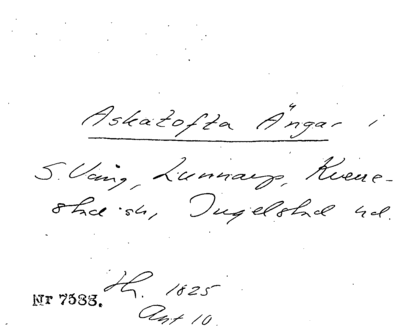 Askatofta Ängar i
S. Vång, Lunnarp, Kverre-
stad sn, Ingelstad hd.
Nr 7588. Th. 1825
Akt 10.